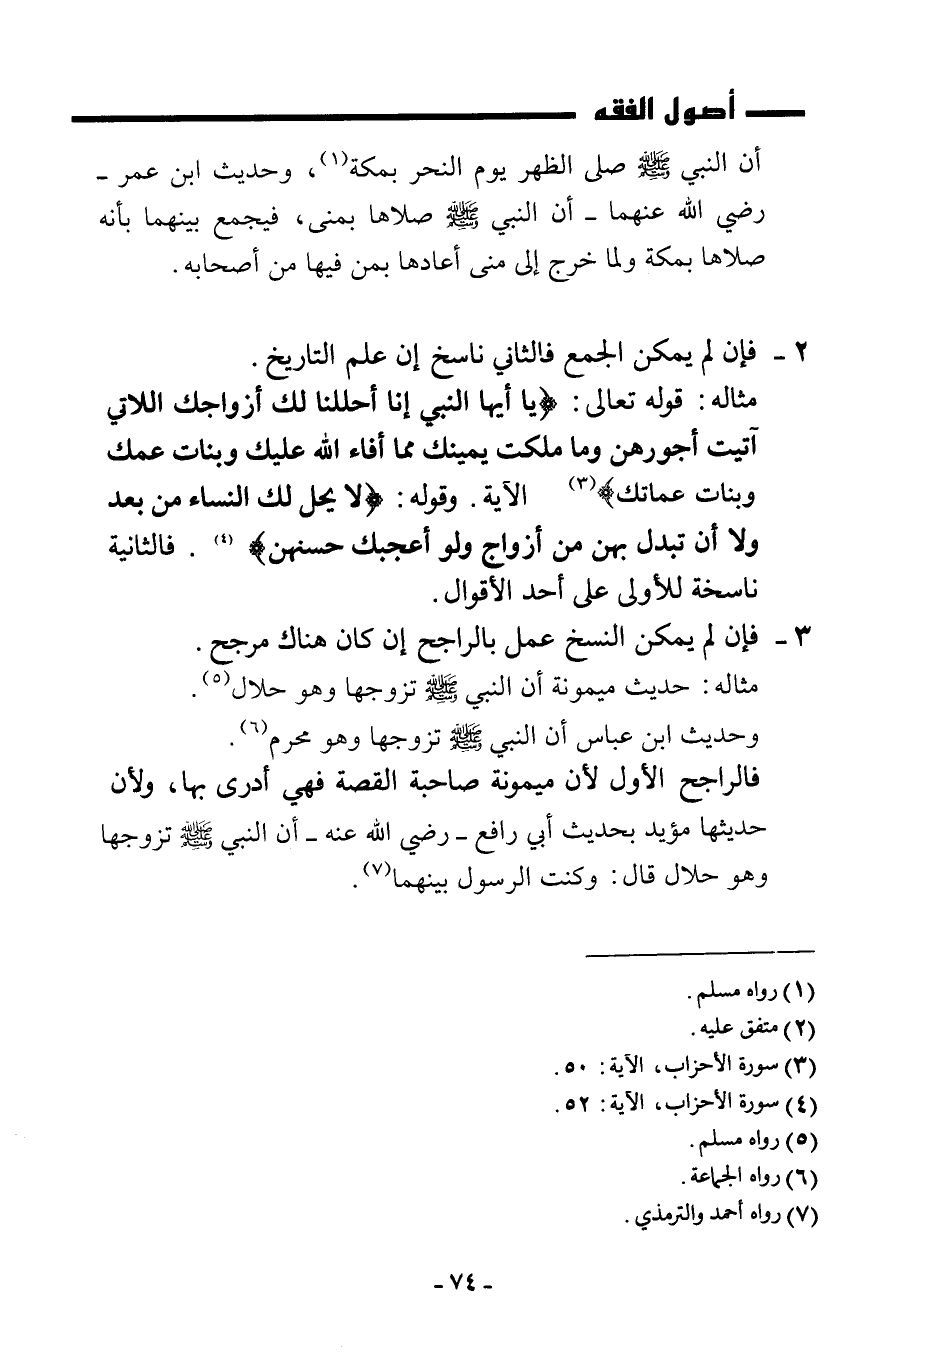 أصول الفقه
أن النبي ﷺ صلى الظهر يوم النحر بمكة(١)، وحديث ابن عمر -
رضي الله عنهما - أن النبي ﷺ صلاها بمنى، فيجمع بينهما بأنه
صلاها بمكة ولما خرج إلى منى أعادها بمن فيها من أصحابه.
٢ - فإن لم يمكن الجمع فالثاني ناسخ إن علم التاريخ.
مثاله: قوله تعالى: ﴿يا أيها النبي إنا أحللنا لك أزواجك اللاتي
آتيت أجورهن وما ملكت يمينك مما أفاء الله عليك وبنات عمك
وبنات عماتك﴾(٣) الآية. وقوله: ﴿لا يحل لك النساء من بعد
ولا أن تبدل بهن من أزواج ولو أعجبك حسنهن﴾ (٤) . فالثانية
ناسخة للأولى على أحد الأقوال.
٣ - فإن لم يمكن النسخ عمل بالراجح إن كان هناك مرجح.
مثاله: حديث ميمونة أن النبي ﷺ تزوجها وهو حلال(٥).
وحديث ابن عباس أن النبي ﷺ تزوجها وهو محرم(٦).
فالراجح الأول لأن ميمونة صاحبة القصة فهي أدرى بها، ولأن
حديثها مؤيد بحديث أبي رافع - رضي الله عنه - أن النبي ﷺ تزوجها
وهو حلال قال: وكنت الرسول بينهما(٧).
(١) رواه مسلم.
(٢) متفق عليه.
(٣) سورة الأحزاب، الآية: ٥٠.
(٤) سورة الأحزاب، الآية: ٥٢.
(٥) رواه مسلم.
(٦) رواه الجماعة.
(٧) رواه أحمد والترمذي.
- ٧٤ -